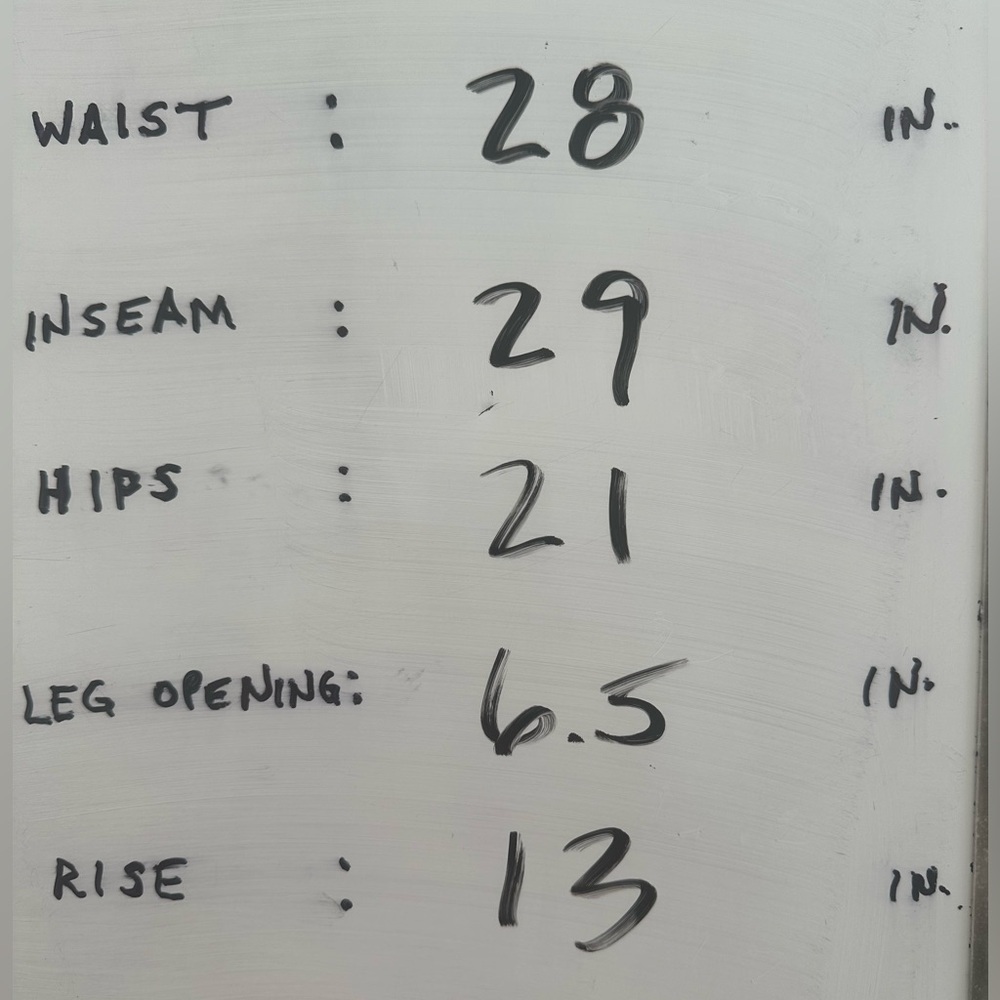 WAIST : 28 IN..
INSEAM : 29 IN.
HIPS : 21 IN.
LEG OPENING: 6.5 IN.
RISE : 13 IN.